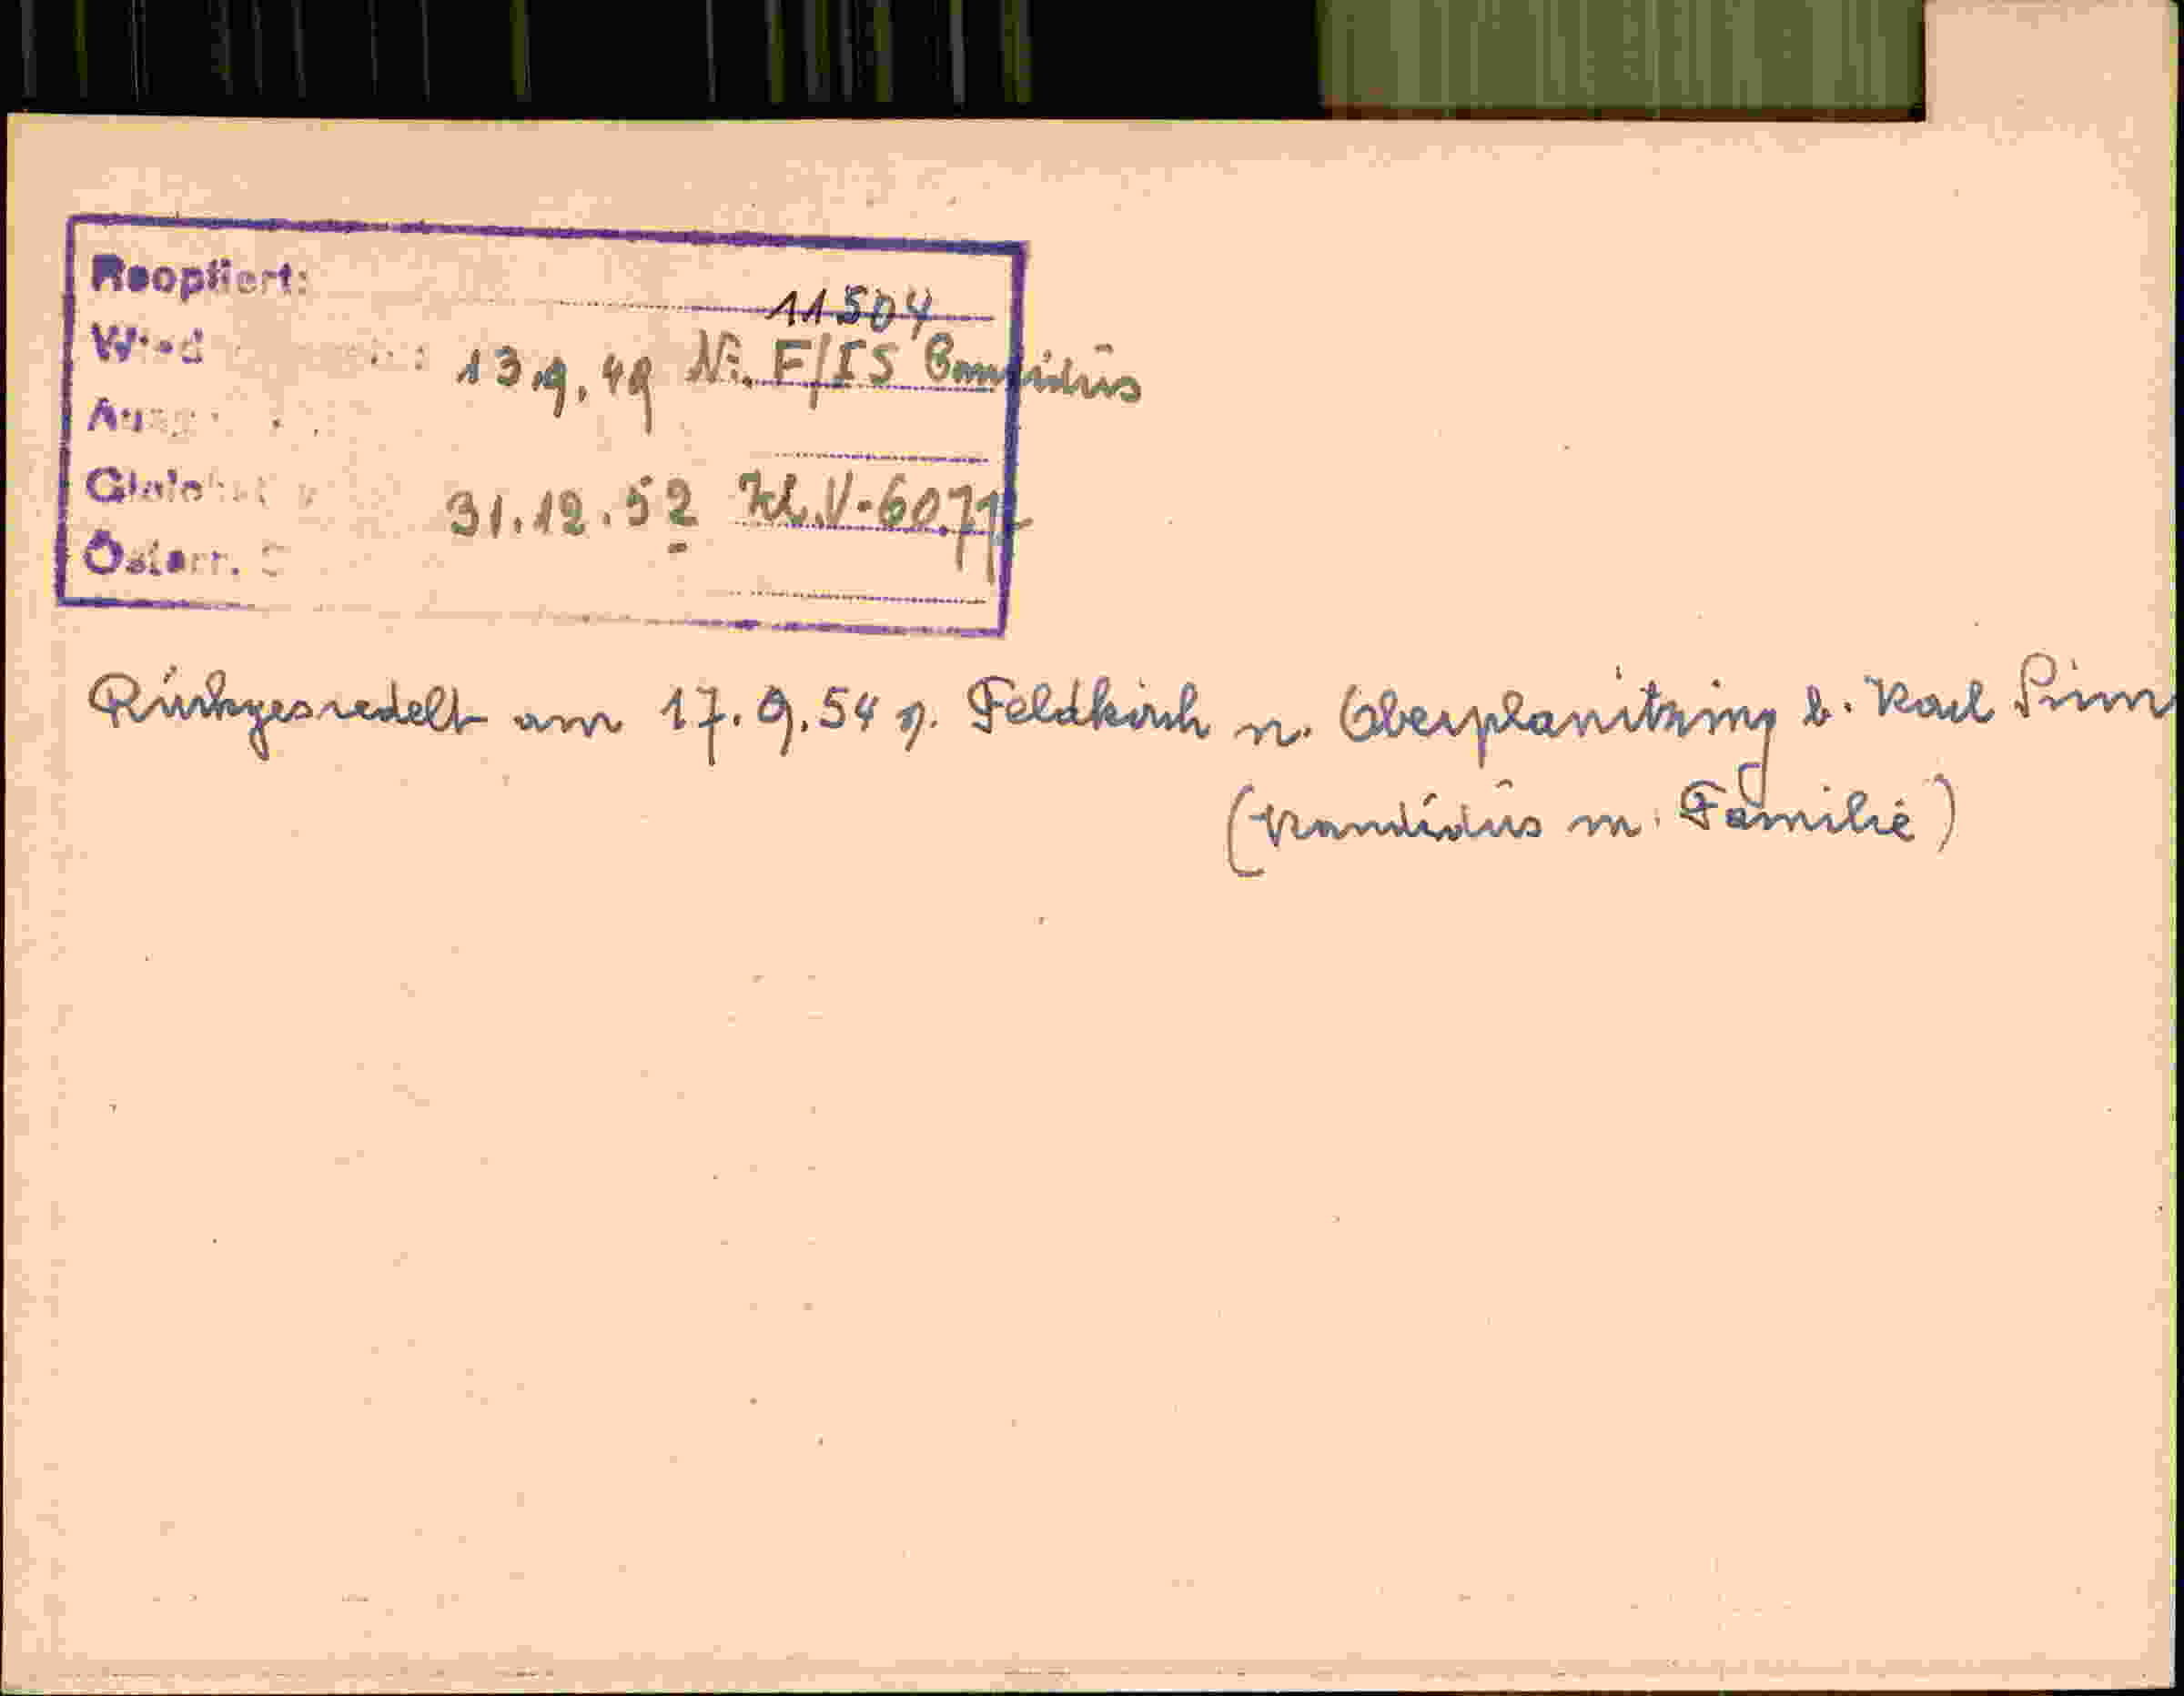 Reoptiert:
11504
13.9.49 Ni. F/IS Candidus
31.12.52 Zl. V-6071
Österr.
Rückgesiedelt am 17.9.54 v. Feldkirch n. Oberplanitzing b. Karl Sinn
(Kandidus m. Familie)